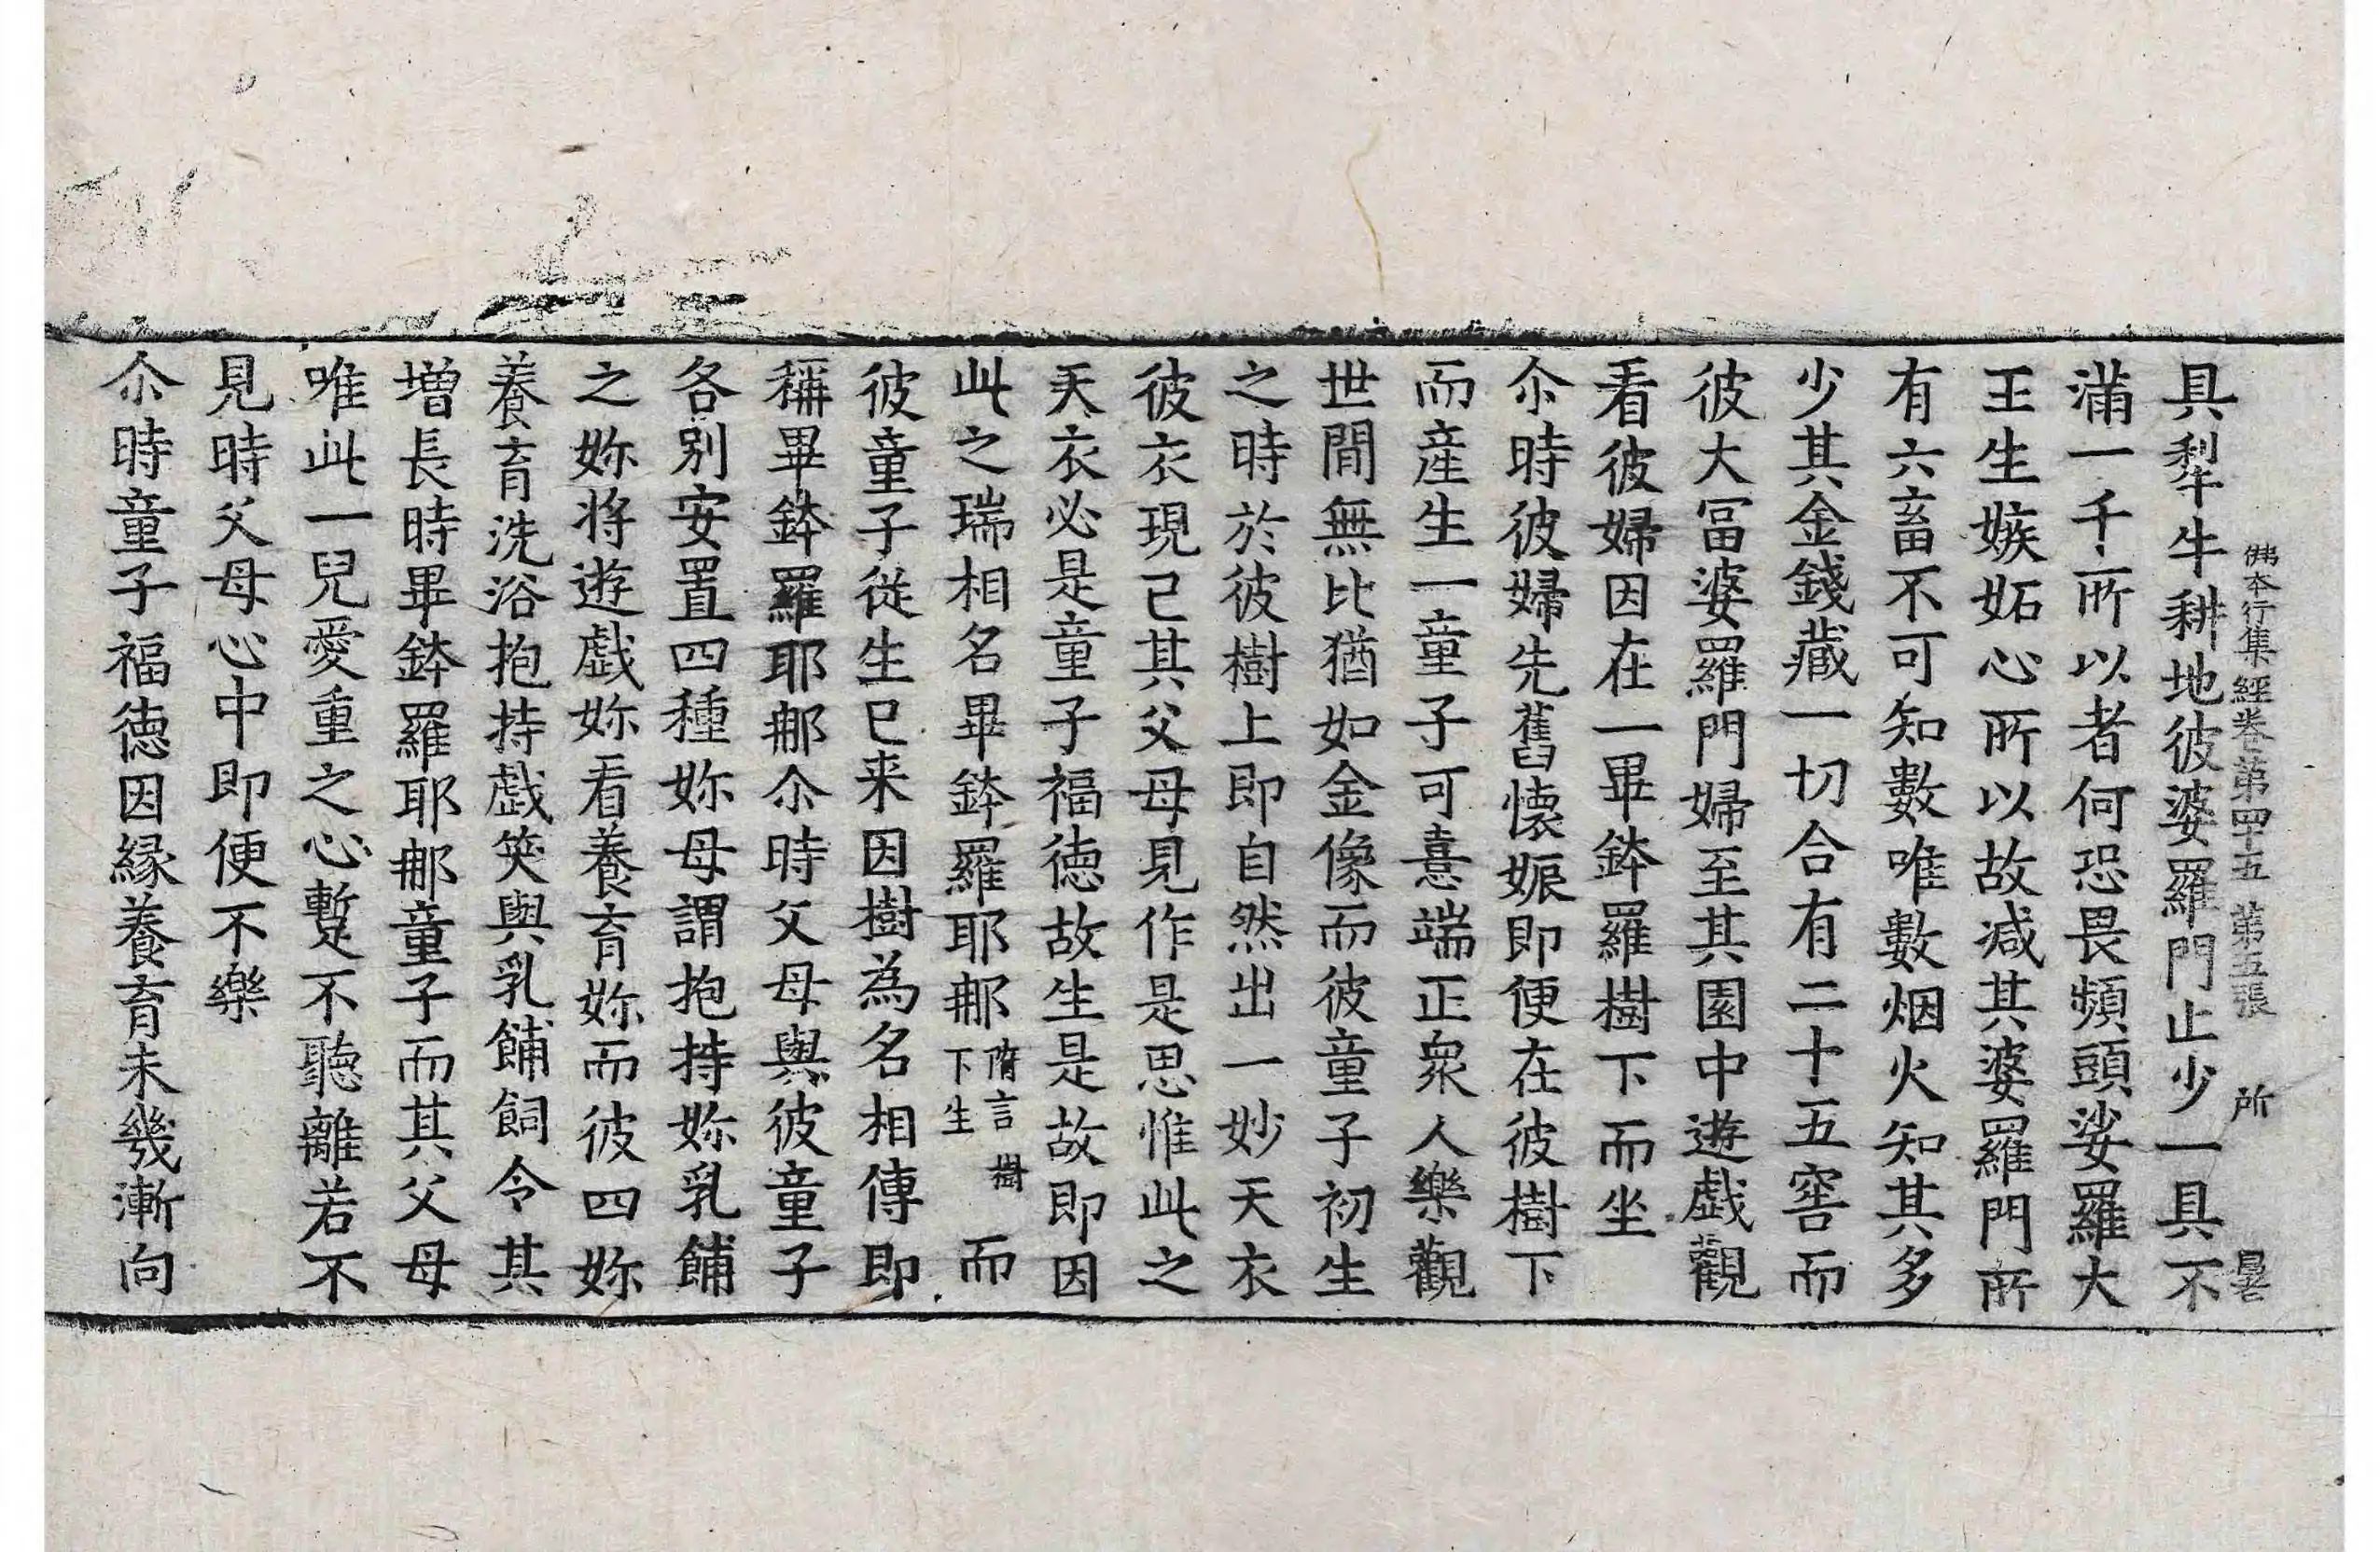 佛本行集經卷第四十五 第五張 所
具犁牛耕地彼婆羅門止少一具不
滿一千所以者何恐畏頻頭娑羅大
王生嫉妬心所以故減其婆羅門所
有六畜不可知數唯數烟火知其多
少其金錢藏一切合有二十五窖而
彼大冨婆羅門婦至其園中遊戲觀
看彼婦因在一畢鉢羅樹下而坐
尒時彼婦先舊懷娠即便在彼樹下
而產生一童子可憙端正衆人樂觀
世間無比猶如金像而彼童子初生
之時於彼樹上即自然出一妙天衣
彼衣現已其父母見作是思惟此之
天衣必是童子福德故生是故即因
此之瑞相名畢鉢羅耶那隋言樹下生而
彼童子從生已来因樹為名相傳即
稱畢鉢羅耶那尒時父母與彼童子
各别安置四種妳母謂抱持妳乳餔
之妳将遊戲妳看養育妳而彼四妳
養育洗浴抱持戲笑與乳餔飼令其
增長時畢鉢羅耶那童子而其父母
唯此一兒愛重之心暫不聽離若不
見時父母心中即便不樂
尒時童子福德因緣養育未幾漸向